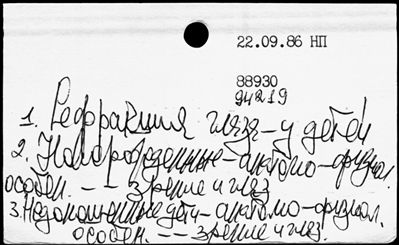 22.09.86 НП
88930
94219
1. Рефракция глаза - у детей
2. Новорожденные - анатомо-физиол.
особен. - - зрение и глаз
3. Недоношенные дети - анатомо-физиол.
особен. - - зрение и глаз.